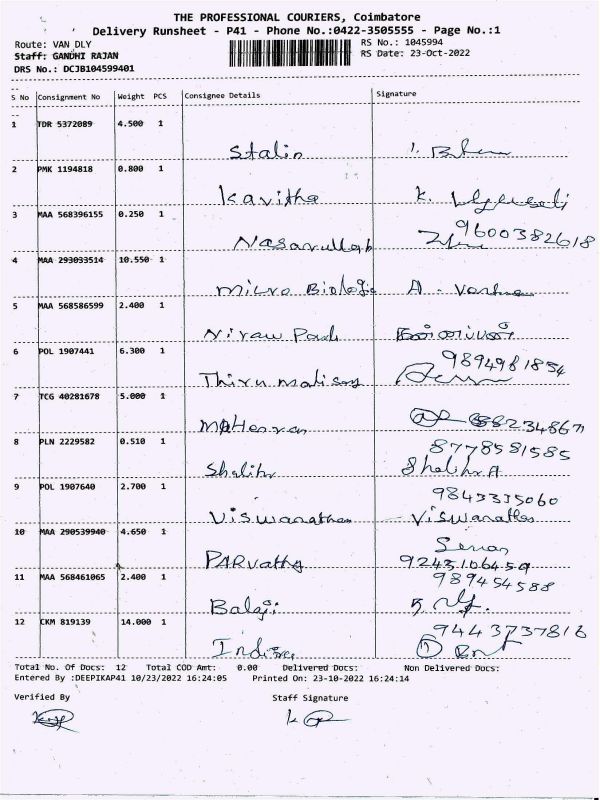 THE PROFESSIONAL COURIERS, Coimbatore
Delivery Runsheet - P41 - Phone No.:0422-3505555 - Page No.:1
Route: VAN DLY RS No.: 1045994
Staff: GANDHI RAJAN RS Date: 23-Oct-2022
DRS No.: DCJB104599401
S No Consignment No Weight PCS Consignee Details Signature
1 TDR 5372089 4.500 1
Stalin
2 PMK 1194818 0.800 1
Kavitha K.
3 MAA 568396155 0.250 1
Nasarullah 9600382618
4 MAA 293033514 10.550 1
Micro Biologic A.
5 MAA 568586599 2.400 1
6 POL 1907441 6.300 1
9894981854
7 TCG 40281678 5.000 1
8 PLN 2229582 0.510 1
8778581585
9 POL 1907640 2.700 1
9843335060
Viswanathan Viswanathan
10 MAA 290539940 4.650 1
PARvathy 9243106459
11 MAA 568461065 2.400 1
989454588
Balaji
12 CKM 819139 14.000 1
9443737816
Indira
Total No. Of Docs: 12 Total COD Amt: 0.00 Delivered Docs: Non Delivered Docs:
Entered By :DEEPIKAP41 10/23/2022 16:24:05 Printed On: 23-10-2022 16:24:14
Verified By Staff Signature